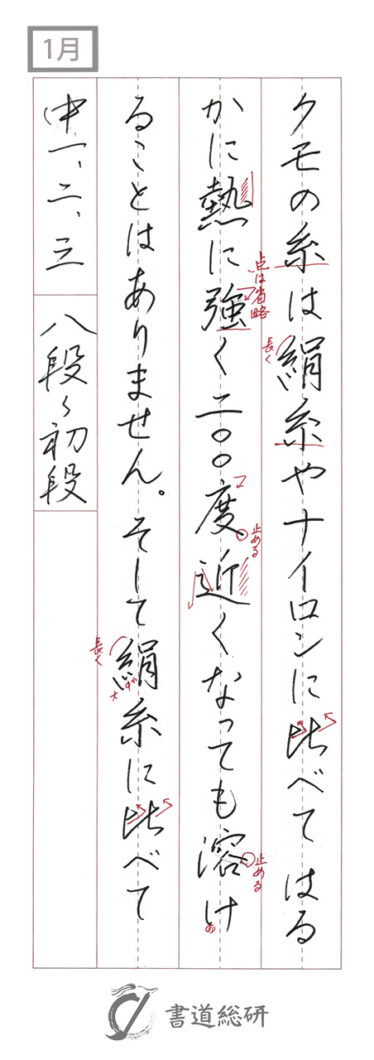 1月
クモの糸は絹糸やナイロンに比べてはる
かに熱に強く二〇〇度近くなっても溶け
ることはありません。そして絹糸に比べて
中一、二、三
八段〜初段
点は省略
長く
止める
止める
の
長く
書道総研